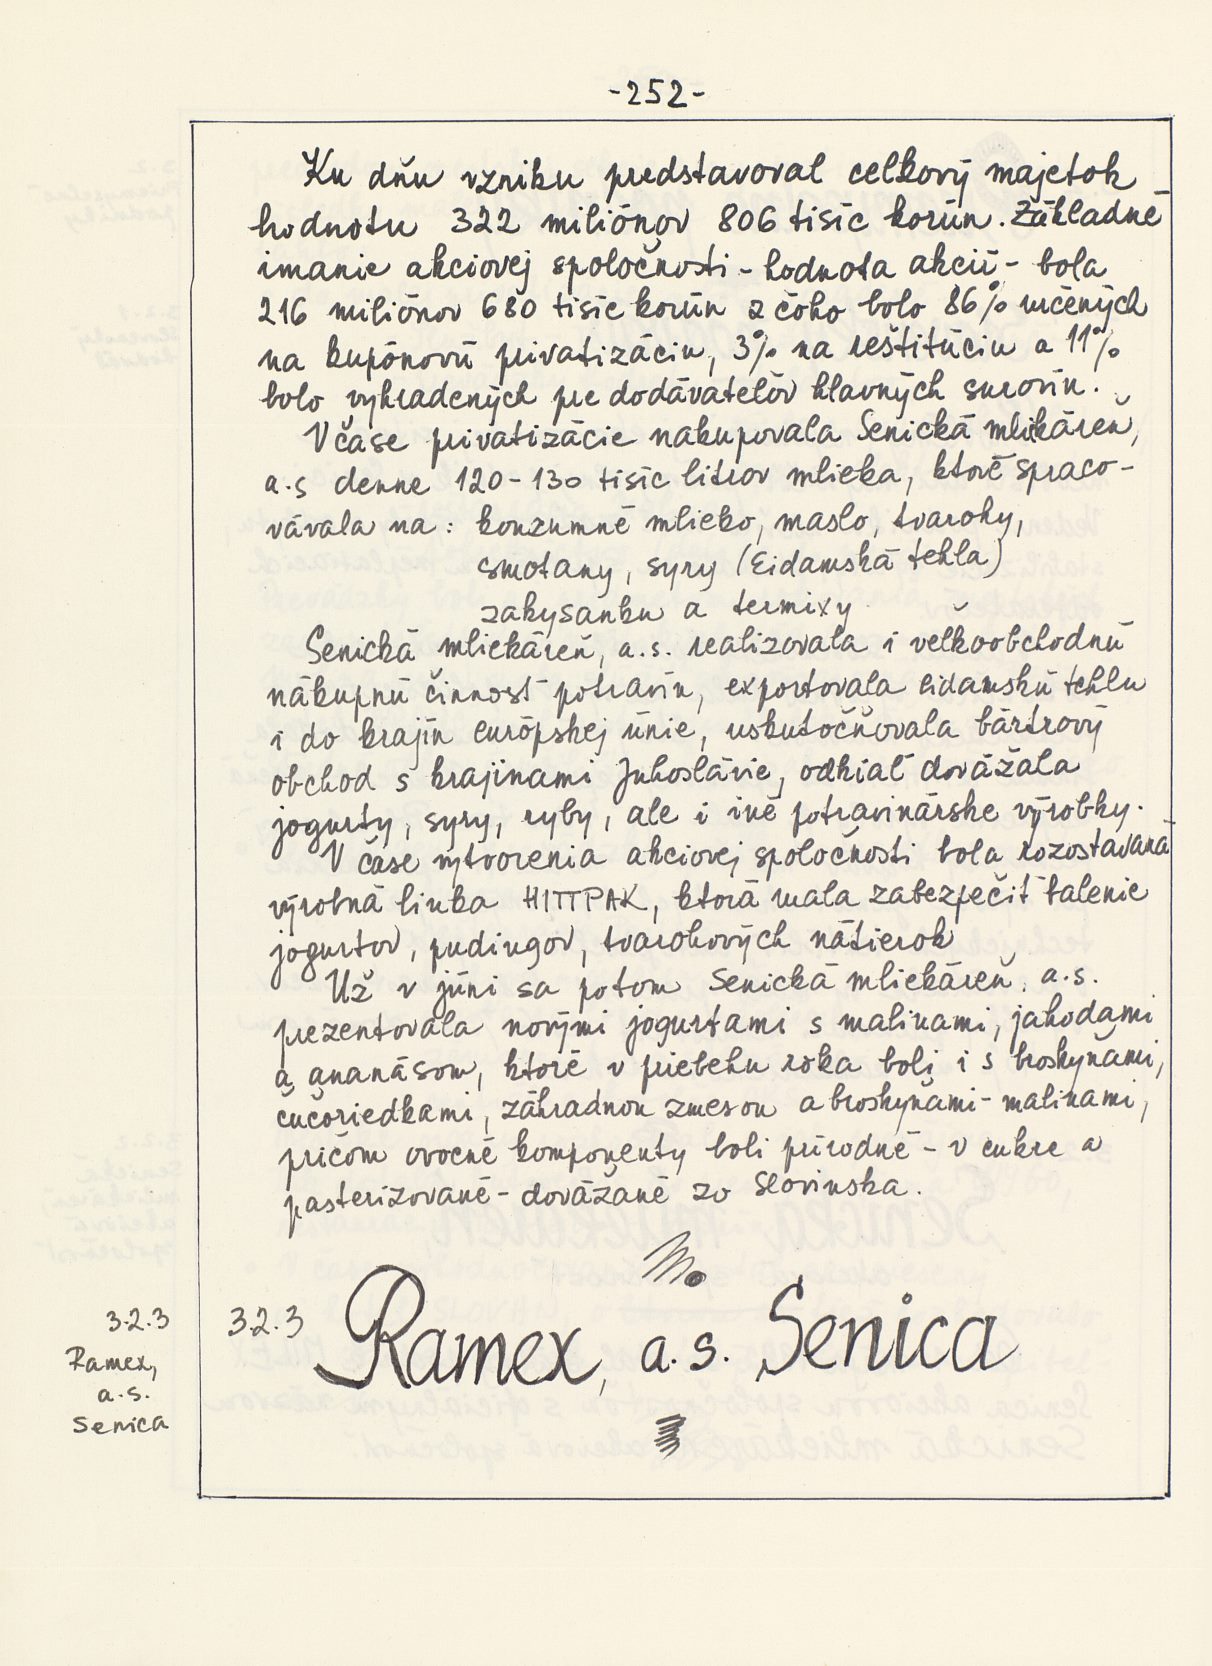 -252-
Ku dňu vzniku predstavoval celkový majetok
hodnotu 322 miliónov 806 tisíc korún. Základné
imanie akciovej spoločnosti - hodnota akcií - bola
216 miliónov 680 tisíc korún z čoho bolo 86% určených
na kupónovú privatizáciu, 3% na reštitúciu a 11%
bolo vyhradených pre dodávateľov hlavných surovín.
V čase privatizácie nakupovala Senická mliekáreň,
a.s denne 120-130 tisíc litrov mlieka, ktoré spraco-
vávala na: konzumné mlieko, maslo, tvarohy,
smotany, syry (Eidamská tehla)
zakysanku a termixy
Senická mliekáreň, a.s. realizovala i veľkoobchodnú
nákupnú činnosť potravín, exportovala eidamskú tehlu
i do krajín európskej únie, uskutočňovala bártrový
obchod s krajinami Juhoslávie, odkiaľ dovážala
jogurty, syry, ryby, ale i iné potravinárske výrobky.
V čase vytvorenia akciovej spoločnosti bola rozostavaná
výrobná linka HITTPAK, ktorá mala zabezpečiť balenie
jogurtov, pudingov, tvarohových nátierok
Už v júni sa potom Senická mliekáreň, a.s.
prezentovala novými jogurtami s malinami, jahodami
a ananásom, ktoré v priebehu roka boli i s broskyňami,
čučoriedkami, záhradnou zmesou a broskyňami-malinami,
pričom ovocné komponenty boli prírodné - v cukre a
pasterizované - dovážané zo Slovinska.
3.2.3 Ramex, a.s. Senica
3.2.3
Ramex,
a.s.
Senica